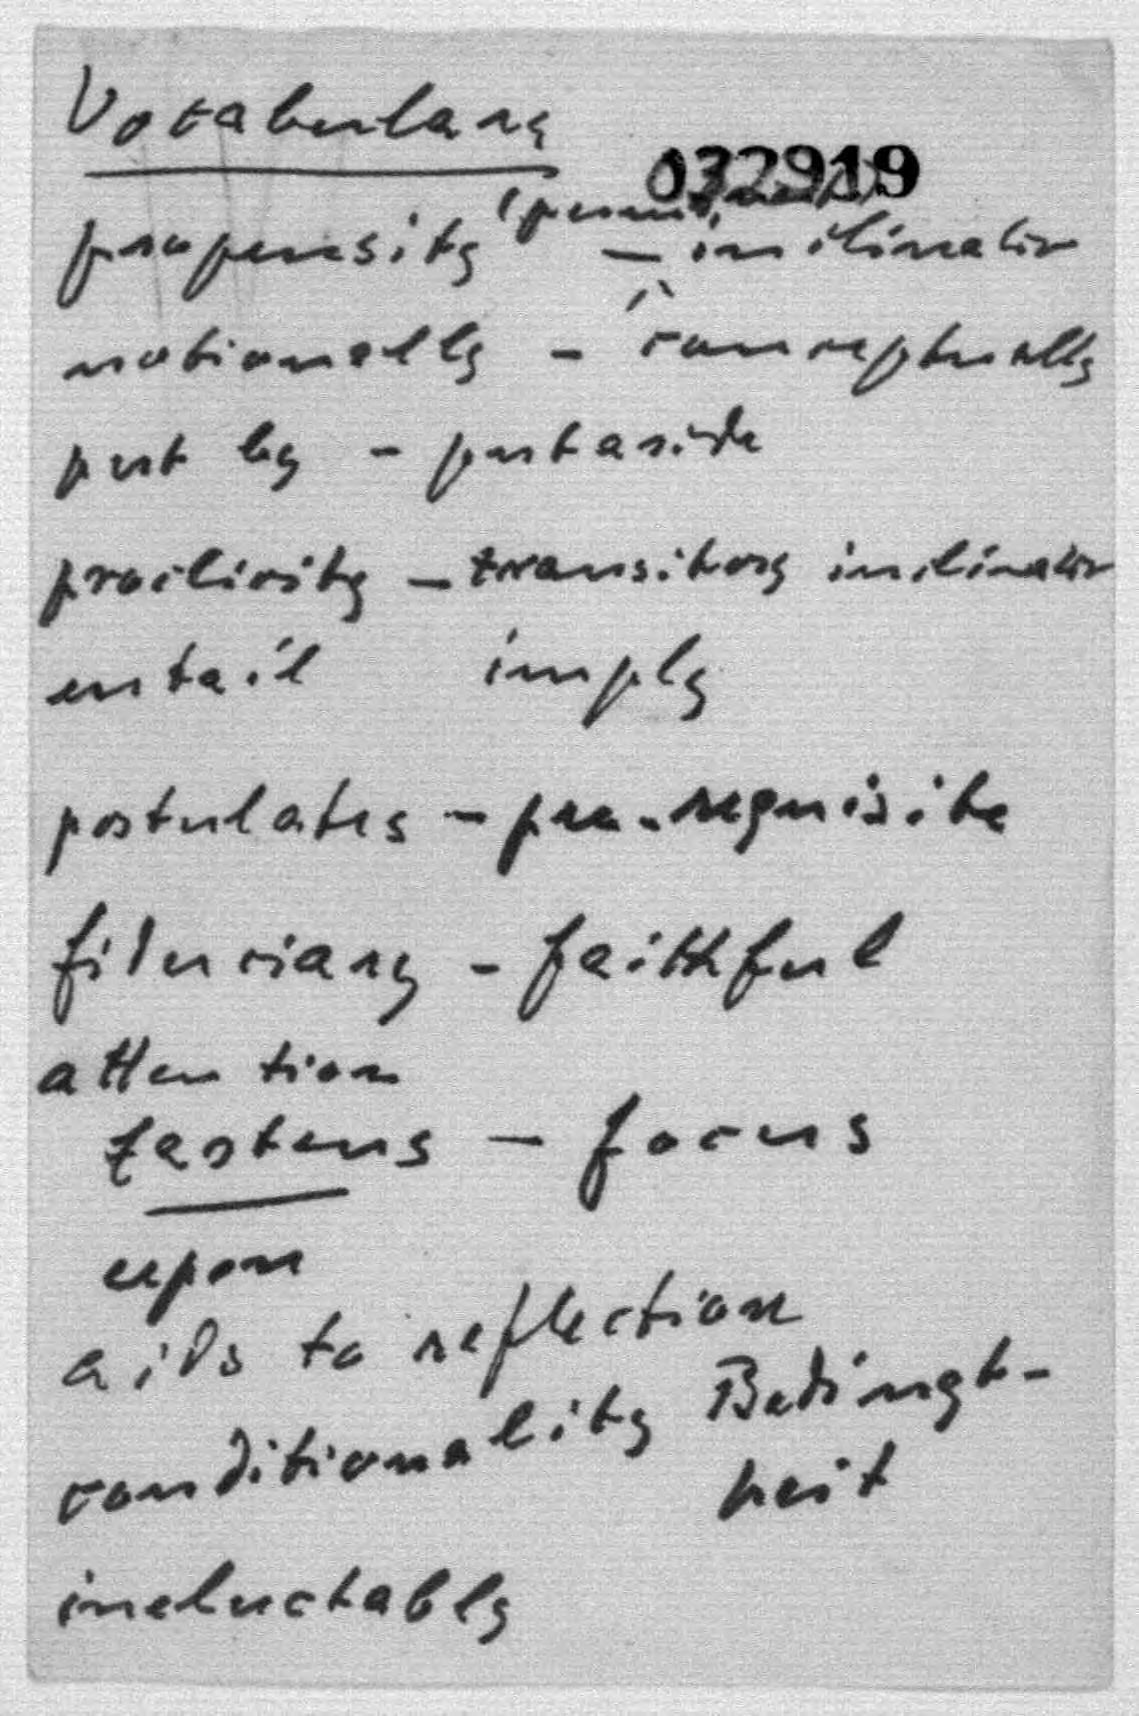 Vocabulary
032919
propensity (permanent) - inclination
notionally - conceptually
put by - put aside
proclivity - transitory inclination
entail imply
postulates - pre-requisite
fiduciary - faithful
attention
fastens - focus
upon
aids to reflection
conditionality Bedingt-
heit
ineluctably